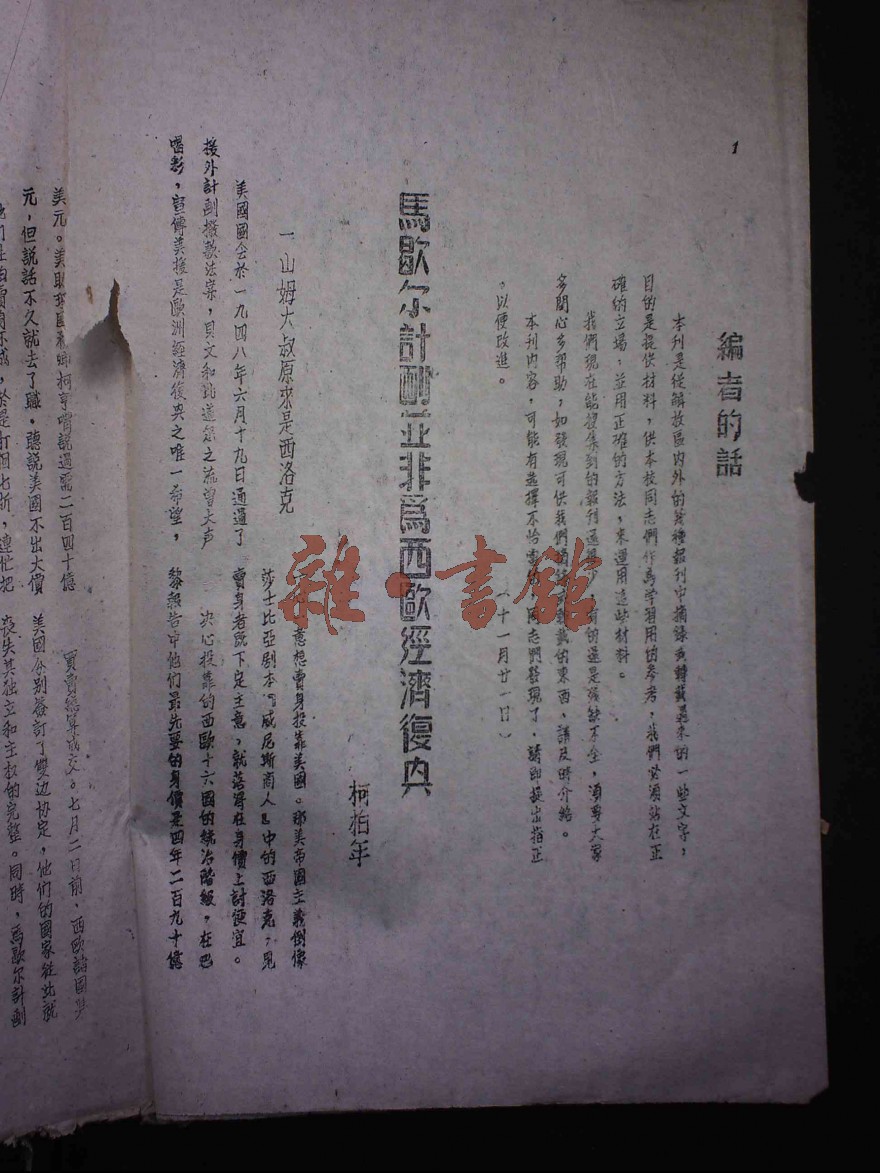 1
編者的話
本刊是從解放區内外的各種報刊中摘錄和轉載过來的一些文字，
目的是提供材料，供本校同志們作為学習用的參考，我們必須站在正
確的立場，並用正確的方法，來運用这些材料。
我們現在能搜集到的報刊还很少，有的还是殘缺不全，須要大家
多関心多帮助，如發現可供我們摘錄或轉載的東西，請及時介紹。
本刊内容，可能有選擇不恰當的，同志們發現了，請即提出指正
，以便改進。
（十一月廿一日）
馬歇尔計劃並非爲西歐經濟復兴
柯柏年
一 山姆大叔原來是西洛克
美國國会於一九四八年六月十九日通過了
援外計劃撥款法案，貝文和比道尔之流曾大声
喝彩，宣傳美援是歐洲經濟復兴之唯一希望，
意想賣身投靠美國。那美帝國主義倒像
莎士比亞剧本『威尼斯商人』中的西洛克，見
賣身者既下定主意，就落得在身價上討便宜。
决心投靠的西歐十六國的統治階級，在巴
黎報告中他們最先要的身價是四年二百九十億
美元。美助理國務卿柯亨嘴說過需二百四十億
元，但説話不久就去了職，聽説美國不出大價
，於是打個七折，連忙把
買賣総算成交。七月二日前，西歐諸國與
美國分别簽訂了雙边协定，他们的國家從此就
喪失其独立和主权的完整。同時，馬歇尔計劃
雜·書館